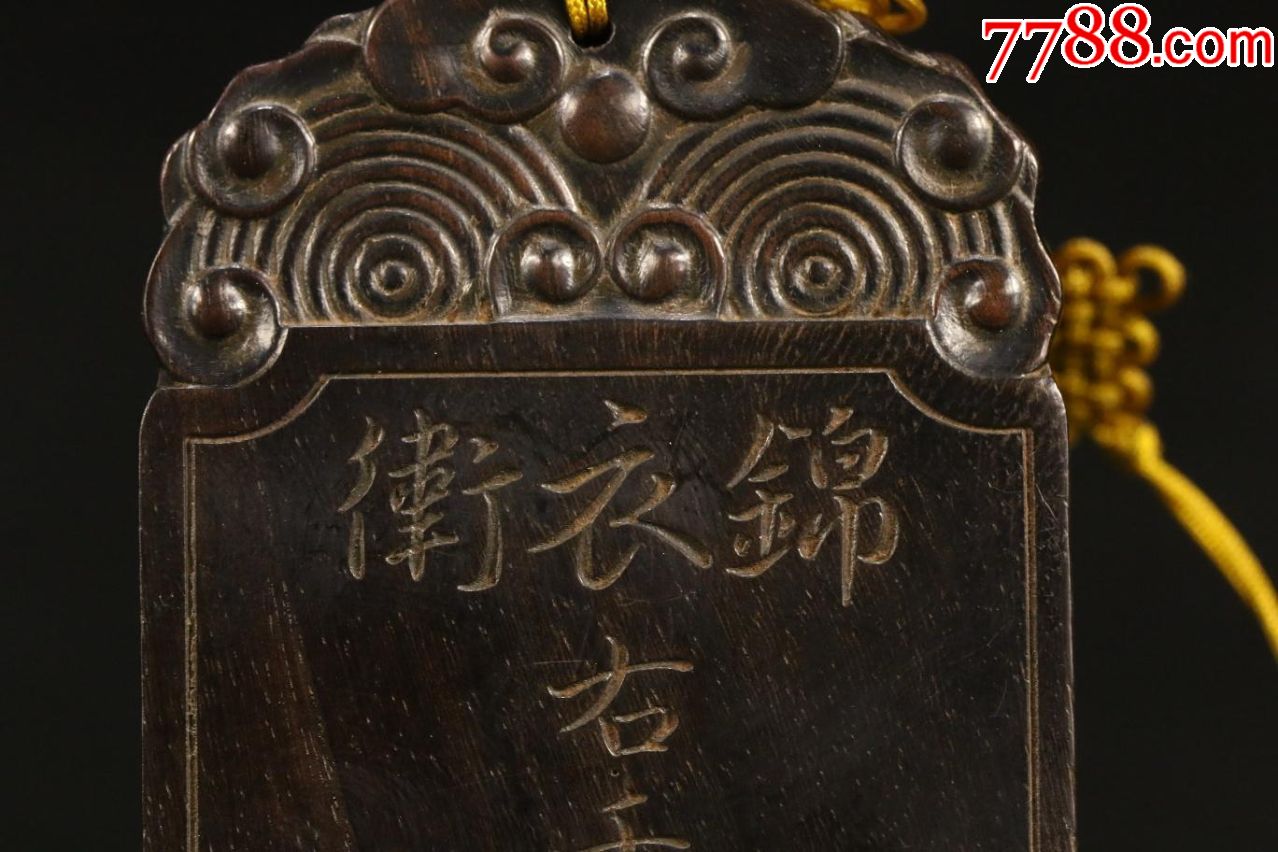 7788.com
錦衣衛
右